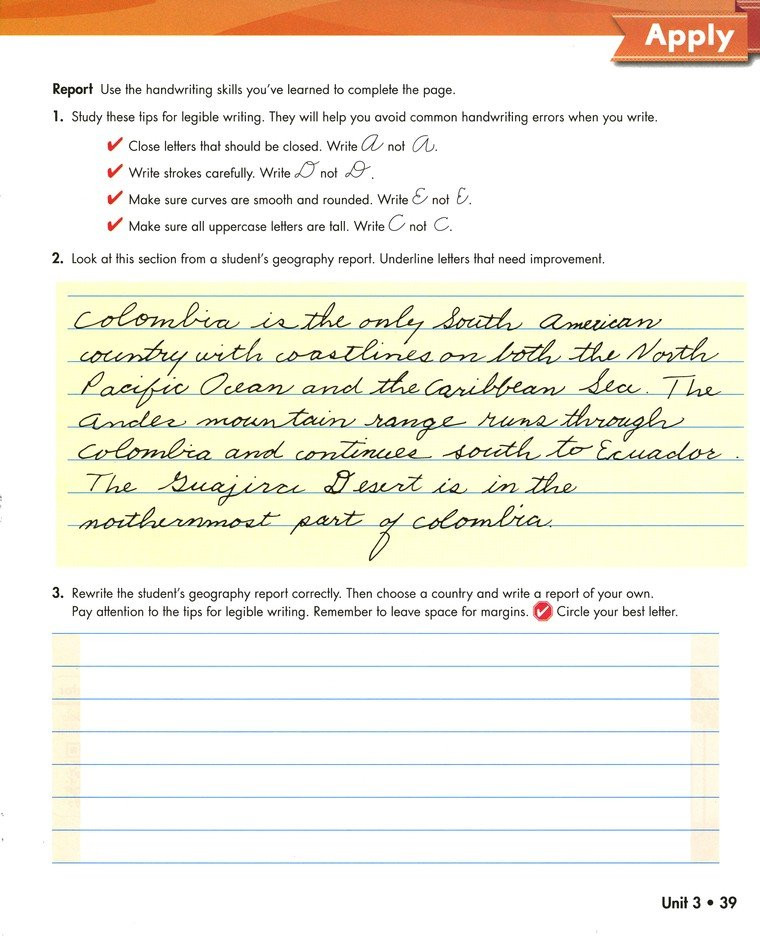 Apply
Report Use the handwriting skills you've learned to complete the page.
1. Study these tips for legible writing. They will help you avoid common handwriting errors when you write.
✔ Close letters that should be closed. Write A not A.
✔ Write strokes carefully. Write D not D.
✔ Make sure curves are smooth and rounded. Write E not E.
✔ Make sure all uppercase letters are tall. Write C not C.
2. Look at this section from a student's geography report. Underline letters that need improvement.
Colombia is the only South American
country with coastlines on both the North
Pacific Ocean and the Caribbean Sea. The
Andes mountain range runs through
Colombia and continues south to Ecuador.
The Guajira Desert is in the
northernmost part of Colombia.
3. Rewrite the student's geography report correctly. Then choose a country and write a report of your own.
Pay attention to the tips for legible writing. Remember to leave space for margins. ✔ Circle your best letter.
Unit 3 • 39